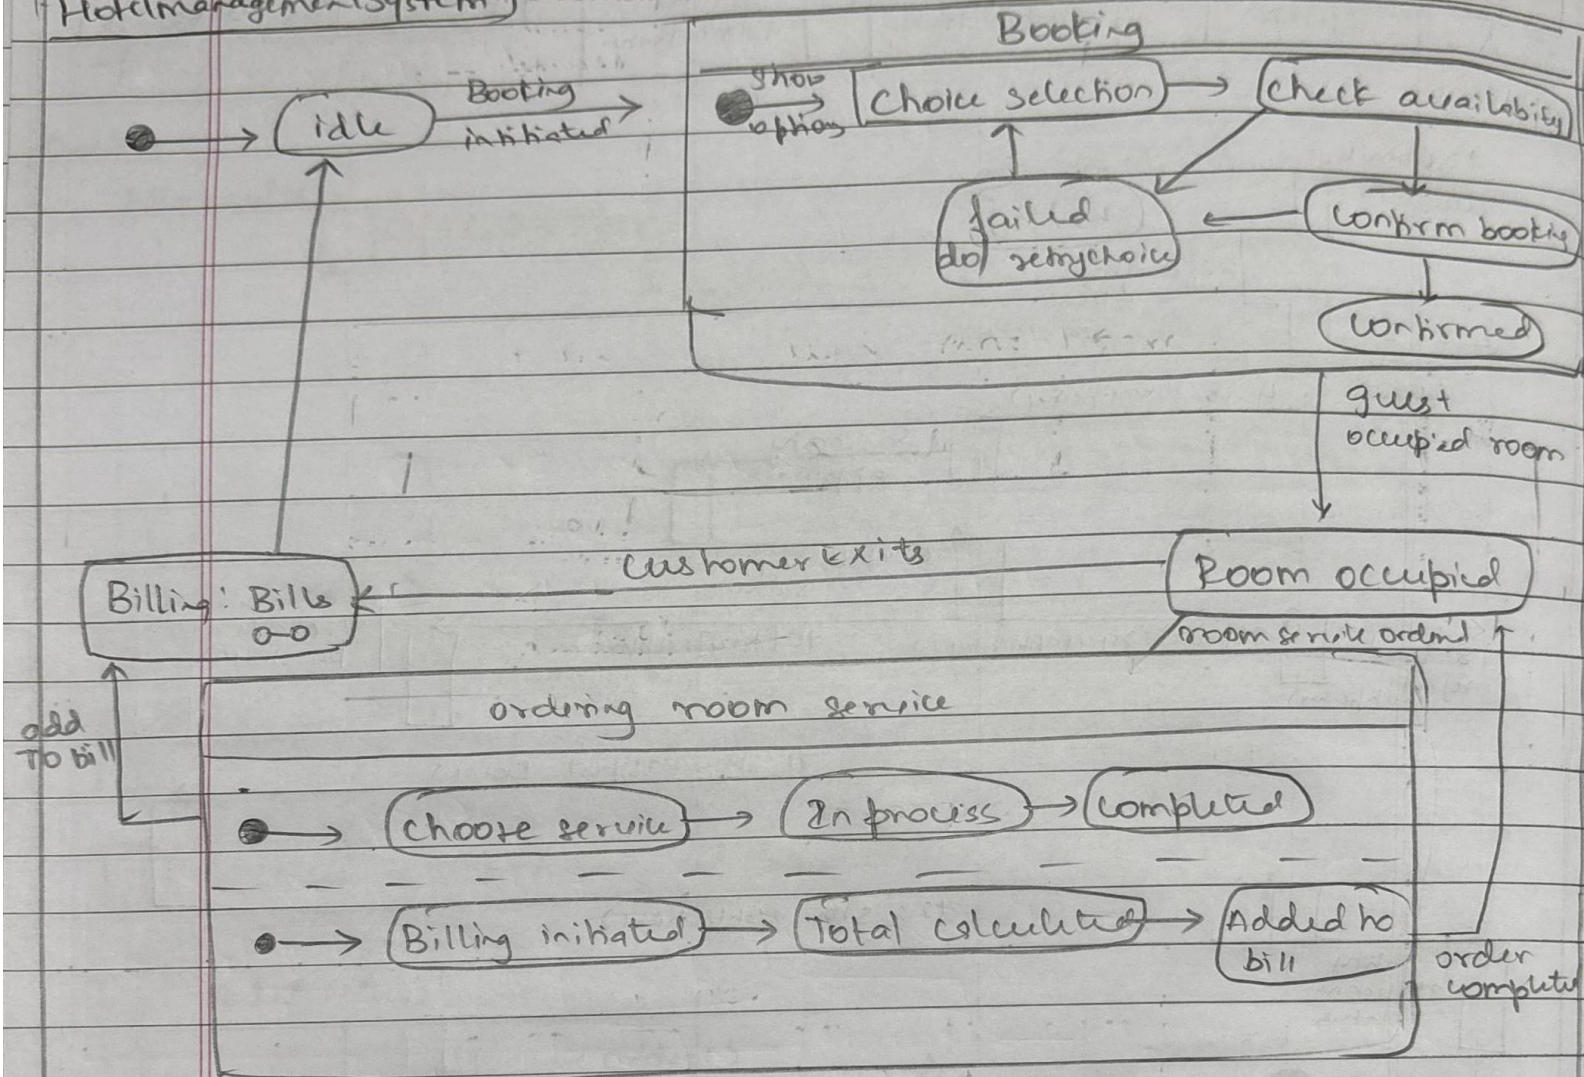 Hotelmanagementsystem)
Booking
idle
Booking
intitiated
show
option
Choice selection
Check availability
failed
do/ retrychoice
Confirm booking
Confirmed
guest
occupied room
Customer Exits
Room occupied
Billing: Bills
room service ordered
add
To bill
ordering room service
Choose service
In process
Completed
Billing initiated
Total calculated
Added to
bill
order
complete